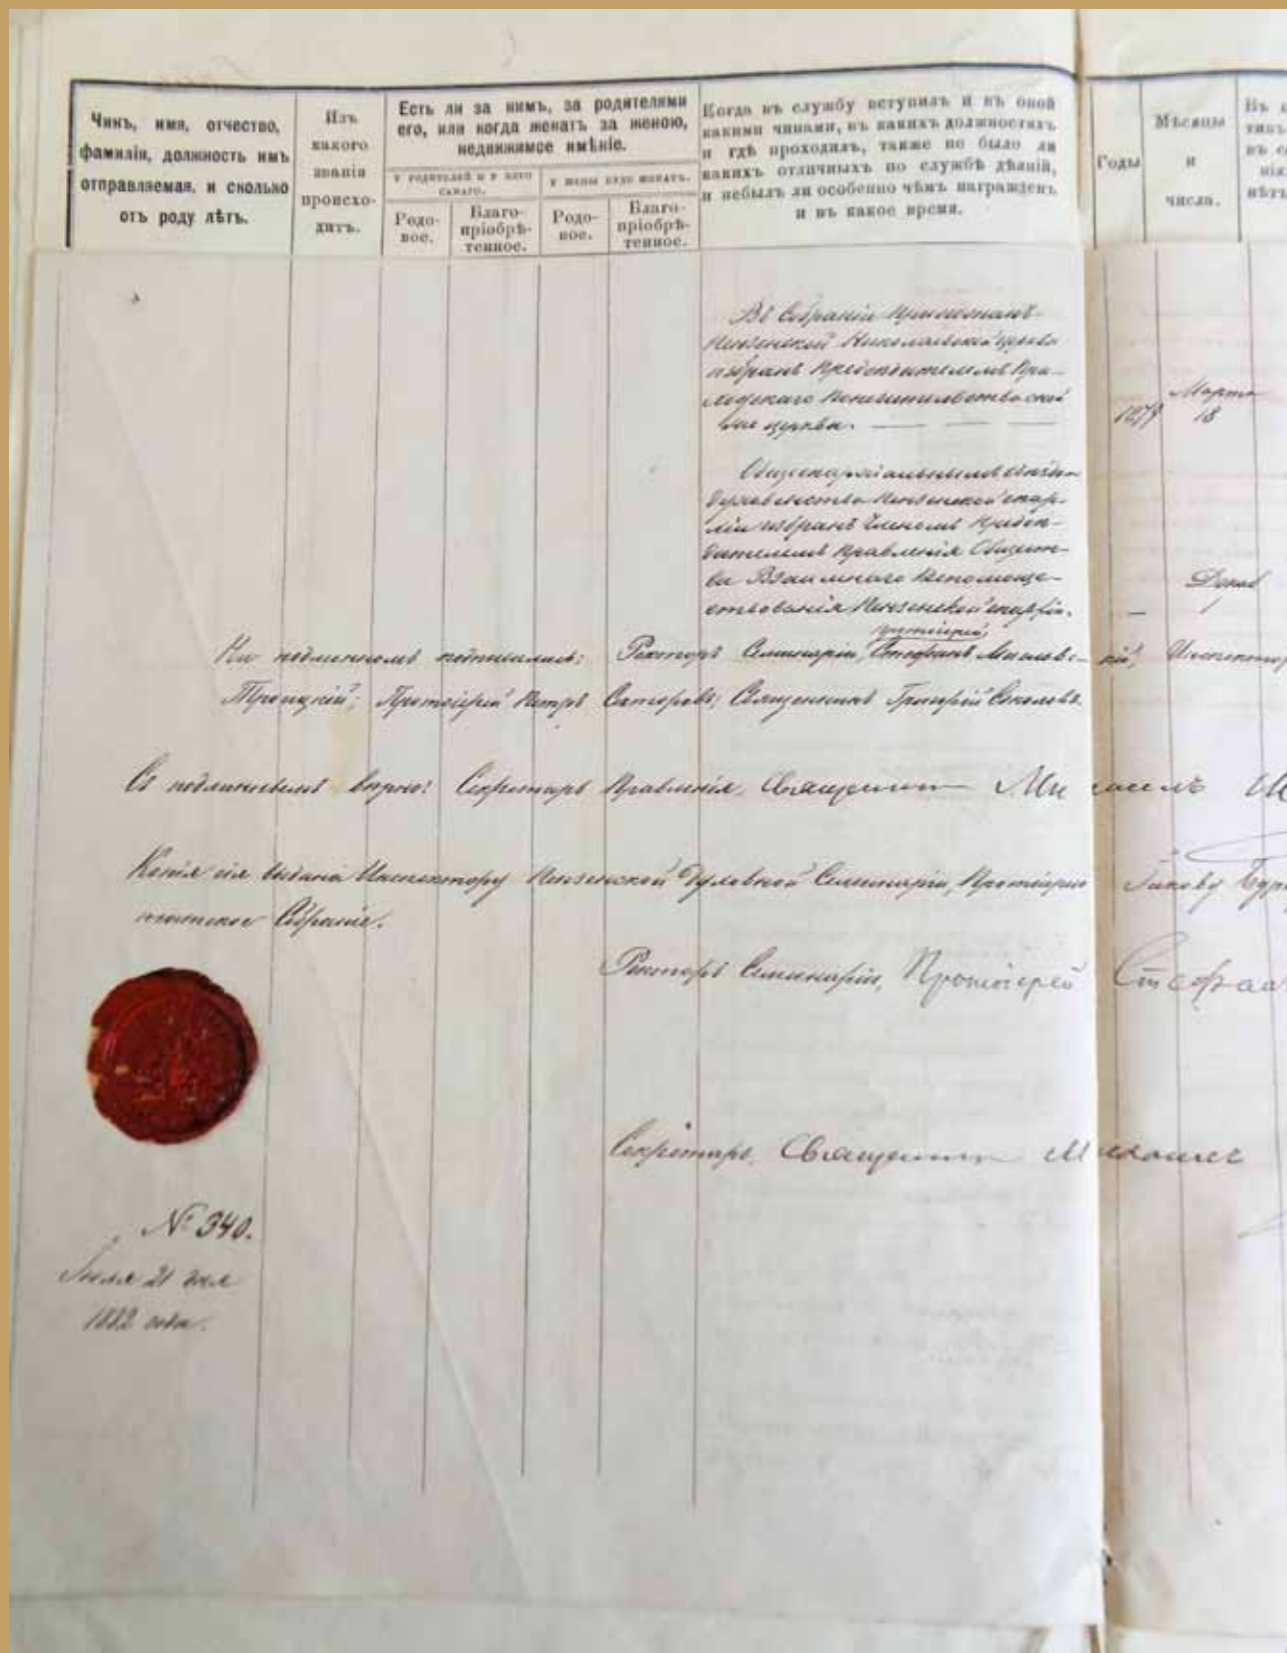 Чинъ, имя, отчество,
фамилія, должность имъ
отправляемая, и сколько
отъ роду лѣтъ.
Изъ
какого
званія
происхо-
дитъ.
Есть ли за нимъ, за родителями
его, или когда женатъ за женою,
недвижимое имѣніе.
У РОДИТЕЛЕЙ И У НЕГО
САМАГО.
У ЖЕНЫ БУДЕ ЖЕНАТЪ.
Родо-
вое.
Благо-
пріобрѣ-
тенное.
Родо-
вое.
Благо-
пріобрѣ-
тенное.
Когда въ службу вступилъ и въ оной
какими чинами, въ какихъ должностяхъ
и гдѣ проходилъ, также не было ли
какихъ отличныхъ по службѣ дѣяній,
и небылъ ли особенно чѣмъ награжденъ
и въ какое время.
Годы
Мѣсяцы
и
числа.
Въ собраніи прихожанъ
Пензенской Николаевской церкви
избранъ Предсѣдателемъ При-
ходскаго Попечительства
церкви.
1879 Марта
18
Общеепархіальнымъ
Духовенства Пензенской епар-
хіи избранъ Членомъ Предсѣ-
дателемъ Правленія Общест-
ва Взаимнаго Вспомоще-
ствованія Пензенской епархіи.
— Декаб
1
На подлинномъ подписались: Ректоръ Семинаріи, Протоіерей Стефанъ Масловскій; Инспектор
Троицкій; Протоіерей Петръ Священникъ Григорій Соколовъ.
Съ подлиннымъ вѣрно: Секретарь Правленія, Священникъ Михаилъ
Копія сія выдана Инспектору Пензенской Духовной Семинаріи, Протоіерею Іакову Бур
Собраніе.
Ректоръ Семинаріи, Протоіерей Стефан
Секретарь, Священникъ Михаилъ
№ 340.
21 дня
1882 года.